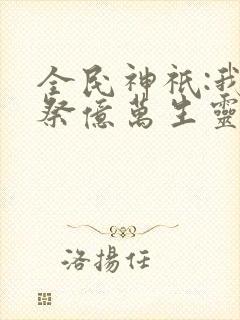 全民神祇:我
祭億萬生靈
洛揚任